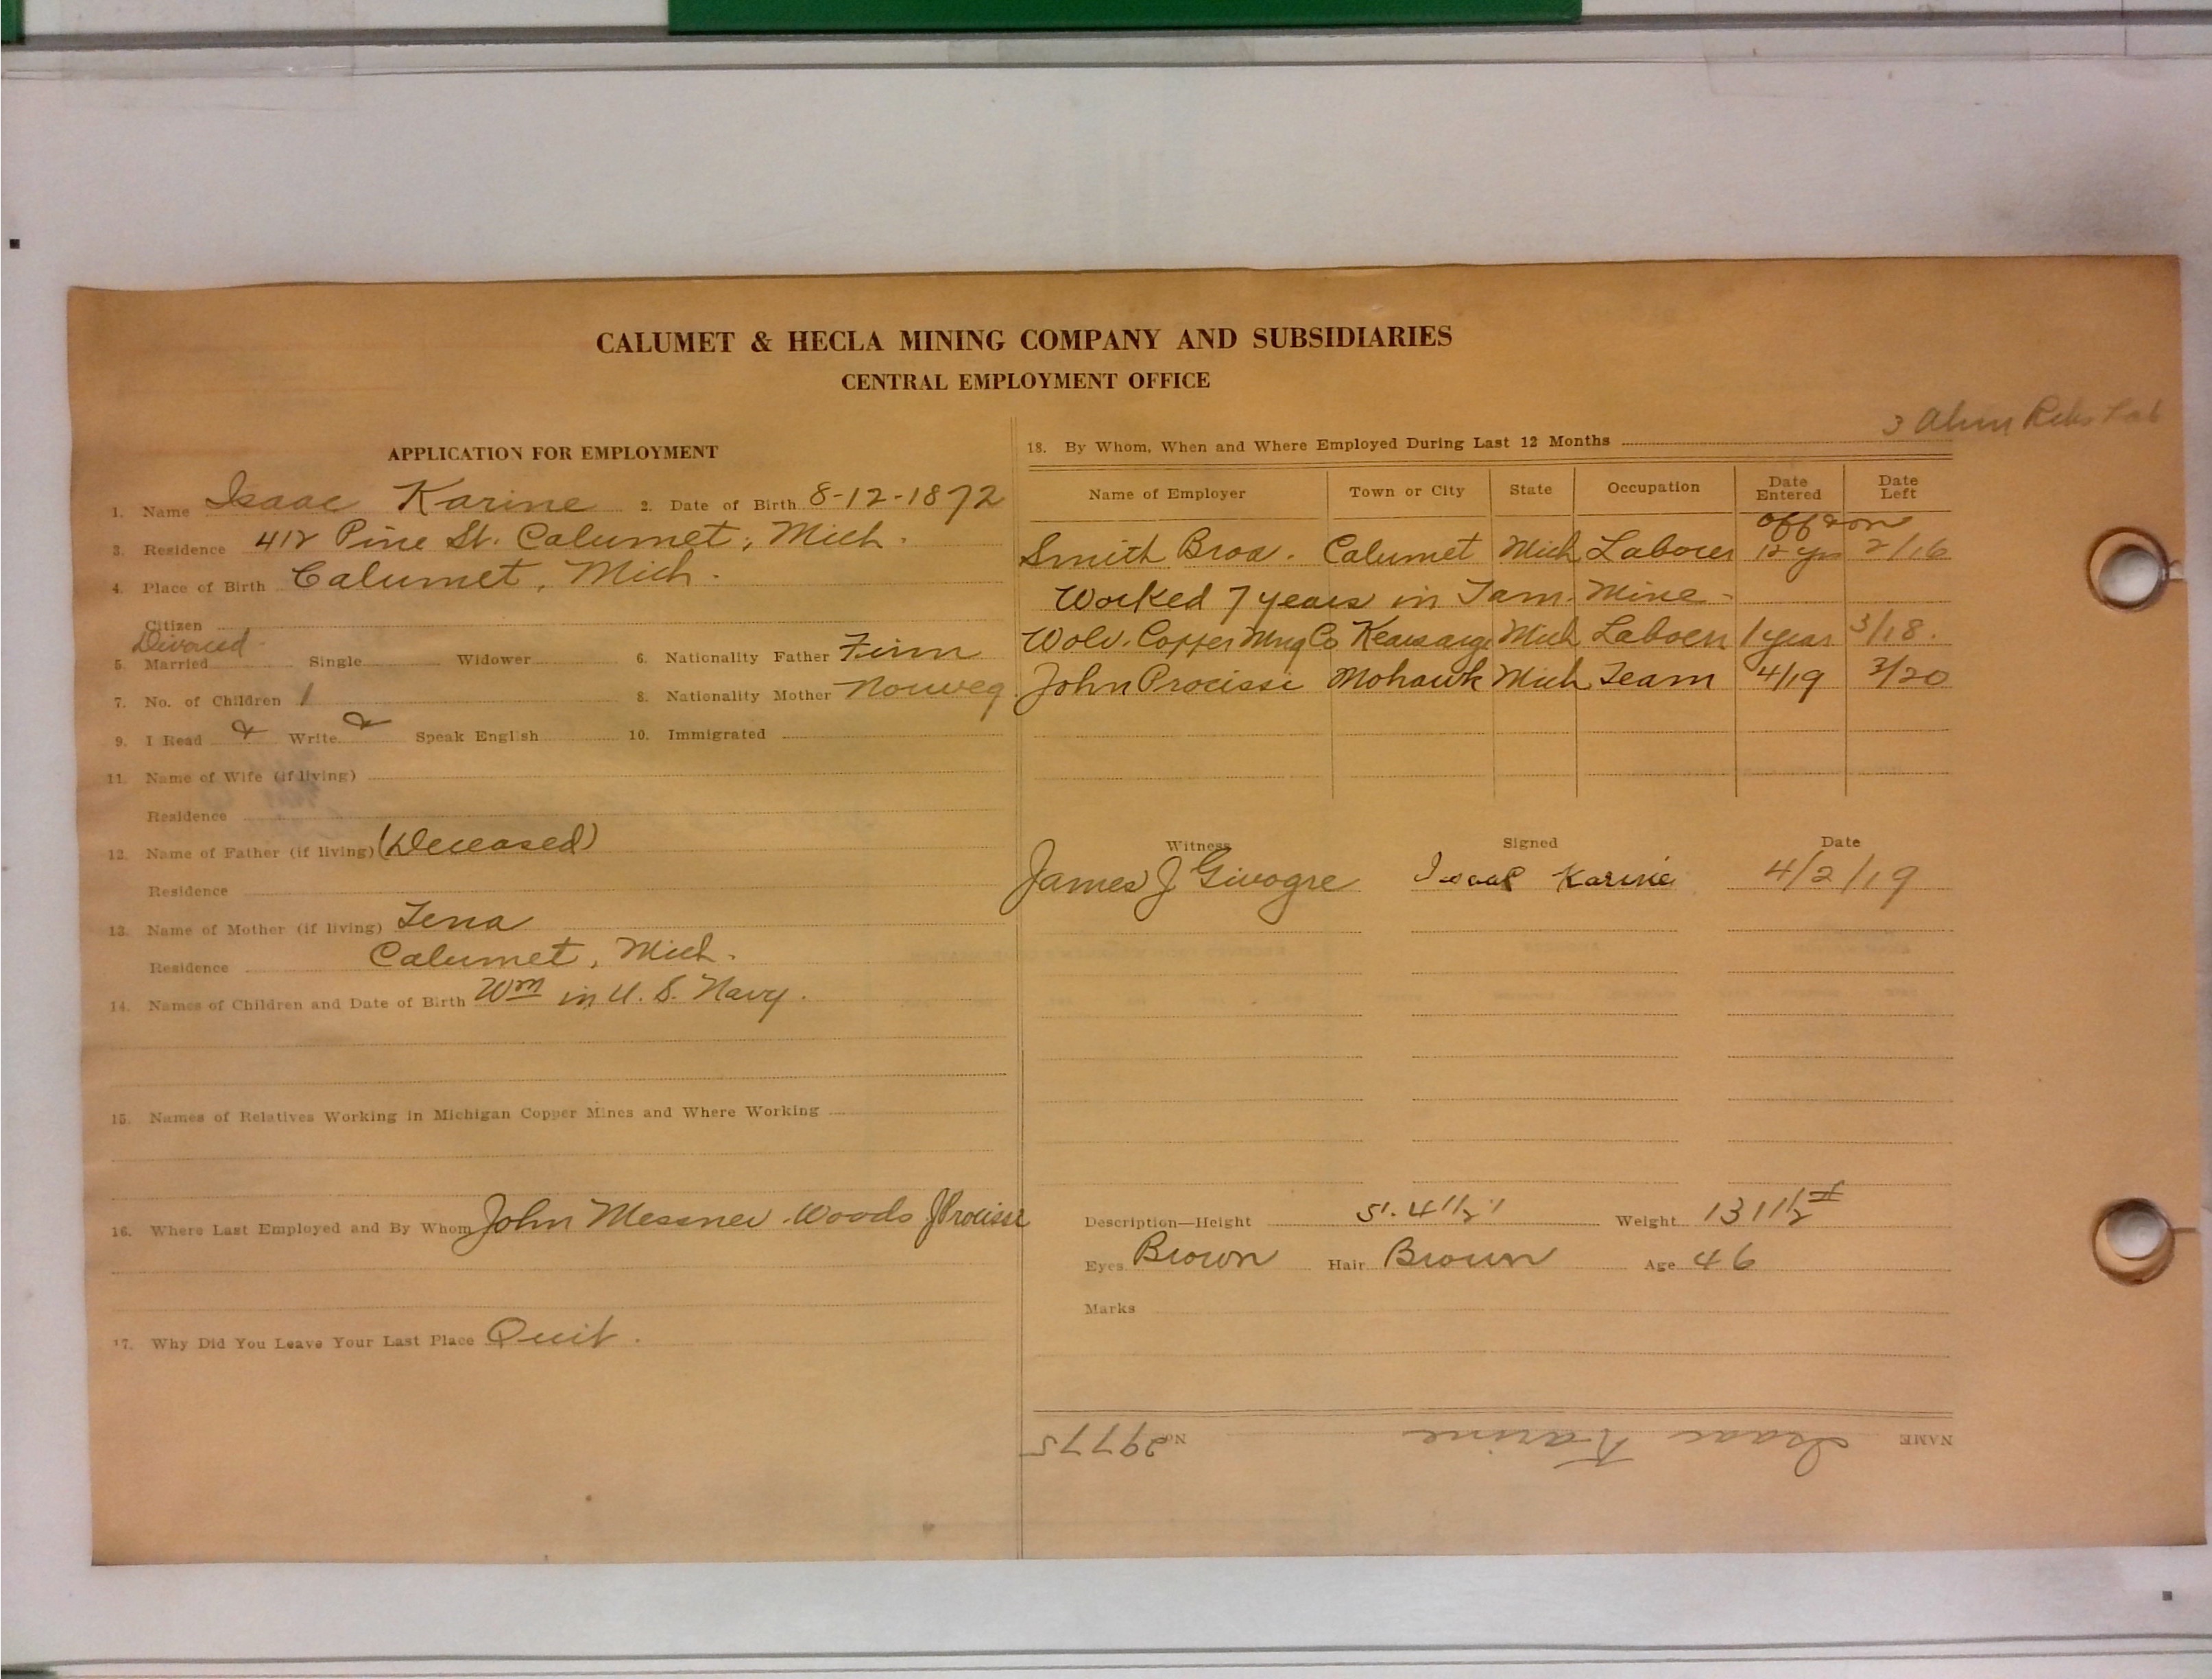 CALUMET & HECLA MINING COMPANY AND SUBSIDIARIES
CENTRAL EMPLOYMENT OFFICE
APPLICATION FOR EMPLOYMENT
1. Name Isaac Karine 2. Date of Birth 8-12-1872
3. Residence 412 Pine St. Calumet, Mich.
4. Place of Birth Calumet, Mich.
Citizen
Divorced
5. Married Single Widower 6. Nationality Father Finn
7. No. of Children 1 8. Nationality Mother Norweg.
9. I Read & Write & Speak English 10. Immigrated
11. Name of Wife (if living)
Residence
12. Name of Father (if living) (Deceased)
Residence
13. Name of Mother (if living) Lena
Residence Calumet, Mich.
14. Names of Children and Date of Birth Wm in U. S. Navy.
15. Names of Relatives Working in Michigan Copper Mines and Where Working
16. Where Last Employed and By Whom John Messner Woods J Procissi
17. Why Did You Leave Your Last Place Quit.
3 Ahm
18. By Whom, When and Where Employed During Last 12 Months
Name of Employer Town or City State Occupation Date Entered Date Left
off & on
Smith Bros. Calumet Mich Laborer 12 yrs 2/16
Worked 7 years in Tam. Mine
Wolv. Copper Mng Co Kearsarge Mich Laborer 1 year 3/18.
John Procissi Mohawk Mich Team 4/19 3/20
Witness Signed Date
James J Givogre Isaac Karine 4/2/19
Description—Height 5'. 4 1/2" Weight 131 1/2 #
Eyes Brown Hair Brown Age 46
Marks
NAME Isaac Karine No. 29775